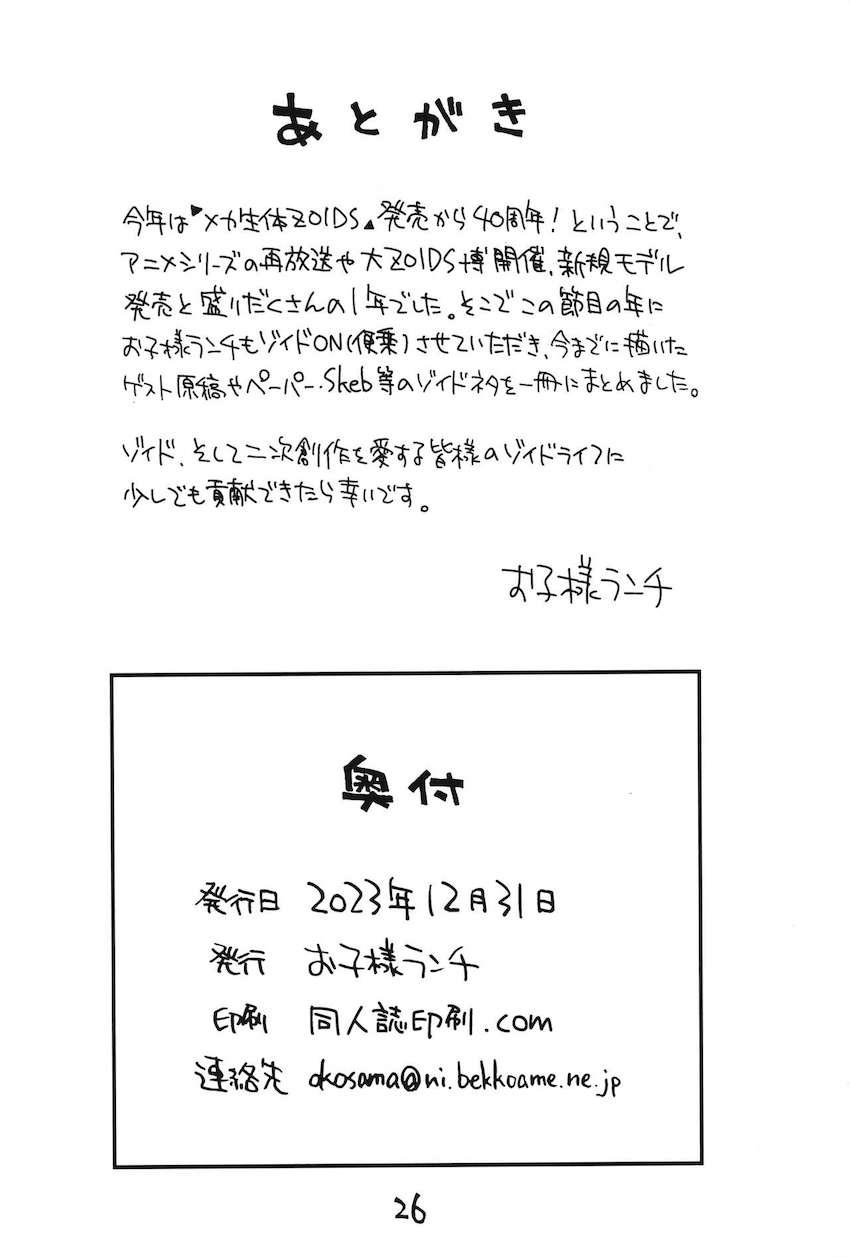 あとがき
今年は▼メカ生体ZOIDS▲発売から40周年!ということで、
アニメシリーズの再放送や大ZOIDS博開催、新規モデル
発売と盛りだくさんの1年でした。そこでこの節目の年に
お子様ランチもゾイドON(便乗)させていただき、今までに描いた
ゲスト原稿やペーパー、Skeb等のゾイドネタを一冊にまとめました。
ゾイド、そして二次創作を愛する皆様のゾイドライフに
少しでも貢献できたら幸いです。
お子様ランチ
奥付
発行日 2023年12月31日
発行 お子様ランチ
印刷 同人誌印刷.com
連絡先 okosama@ni.bekkoame.ne.jp
26